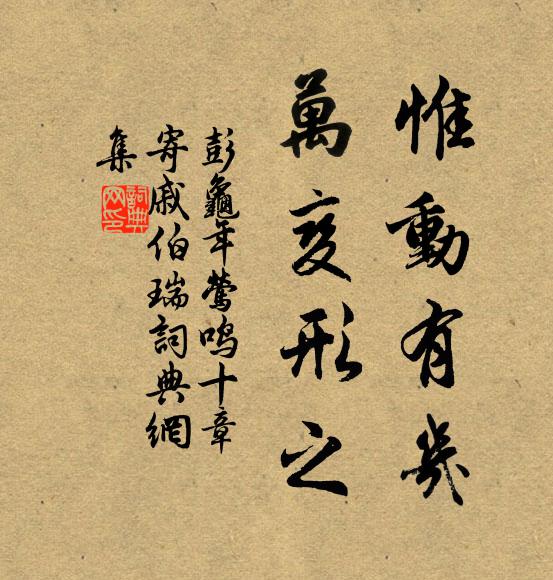 惟動有幾
萬变形之
彭龜年鶯鳴十章
寄戚伯瑞詞典網
集
詞典网印